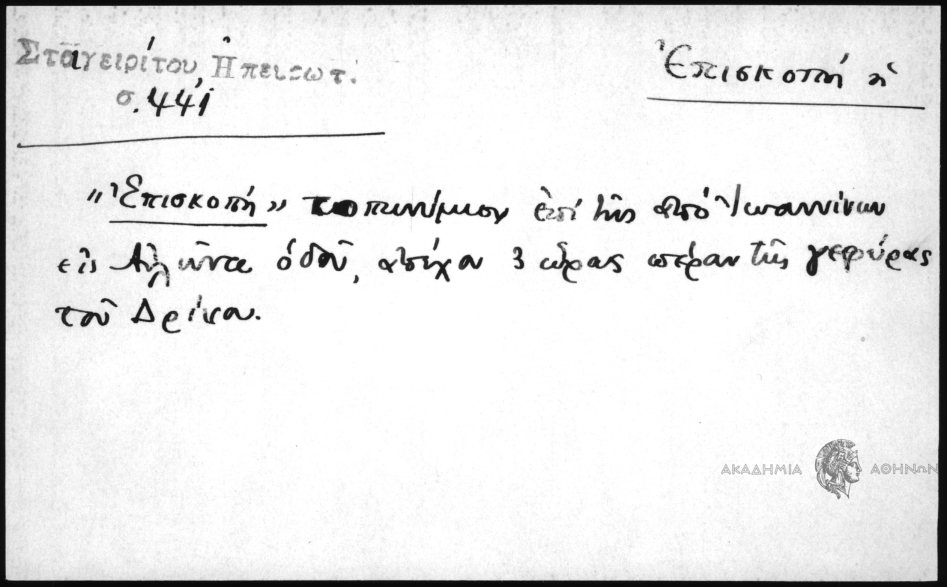 Σταγειρίτου, Ἠπειρωτ.
σ. 441
Ἐπισκοπή ἡ
"Ἐπισκοπή" τοπωνύμιον ἐπί τῆς ἀπό Ἰωαννίνων
εἰς Αὐλῶνα ὁδοῦ, ἀπέχον 3 ὥρας πέραν τῆς γεφύρας
τοῦ Δρίνου.
ΑΚΑΔΗΜΙΑ ΑΘΗΝΩΝ